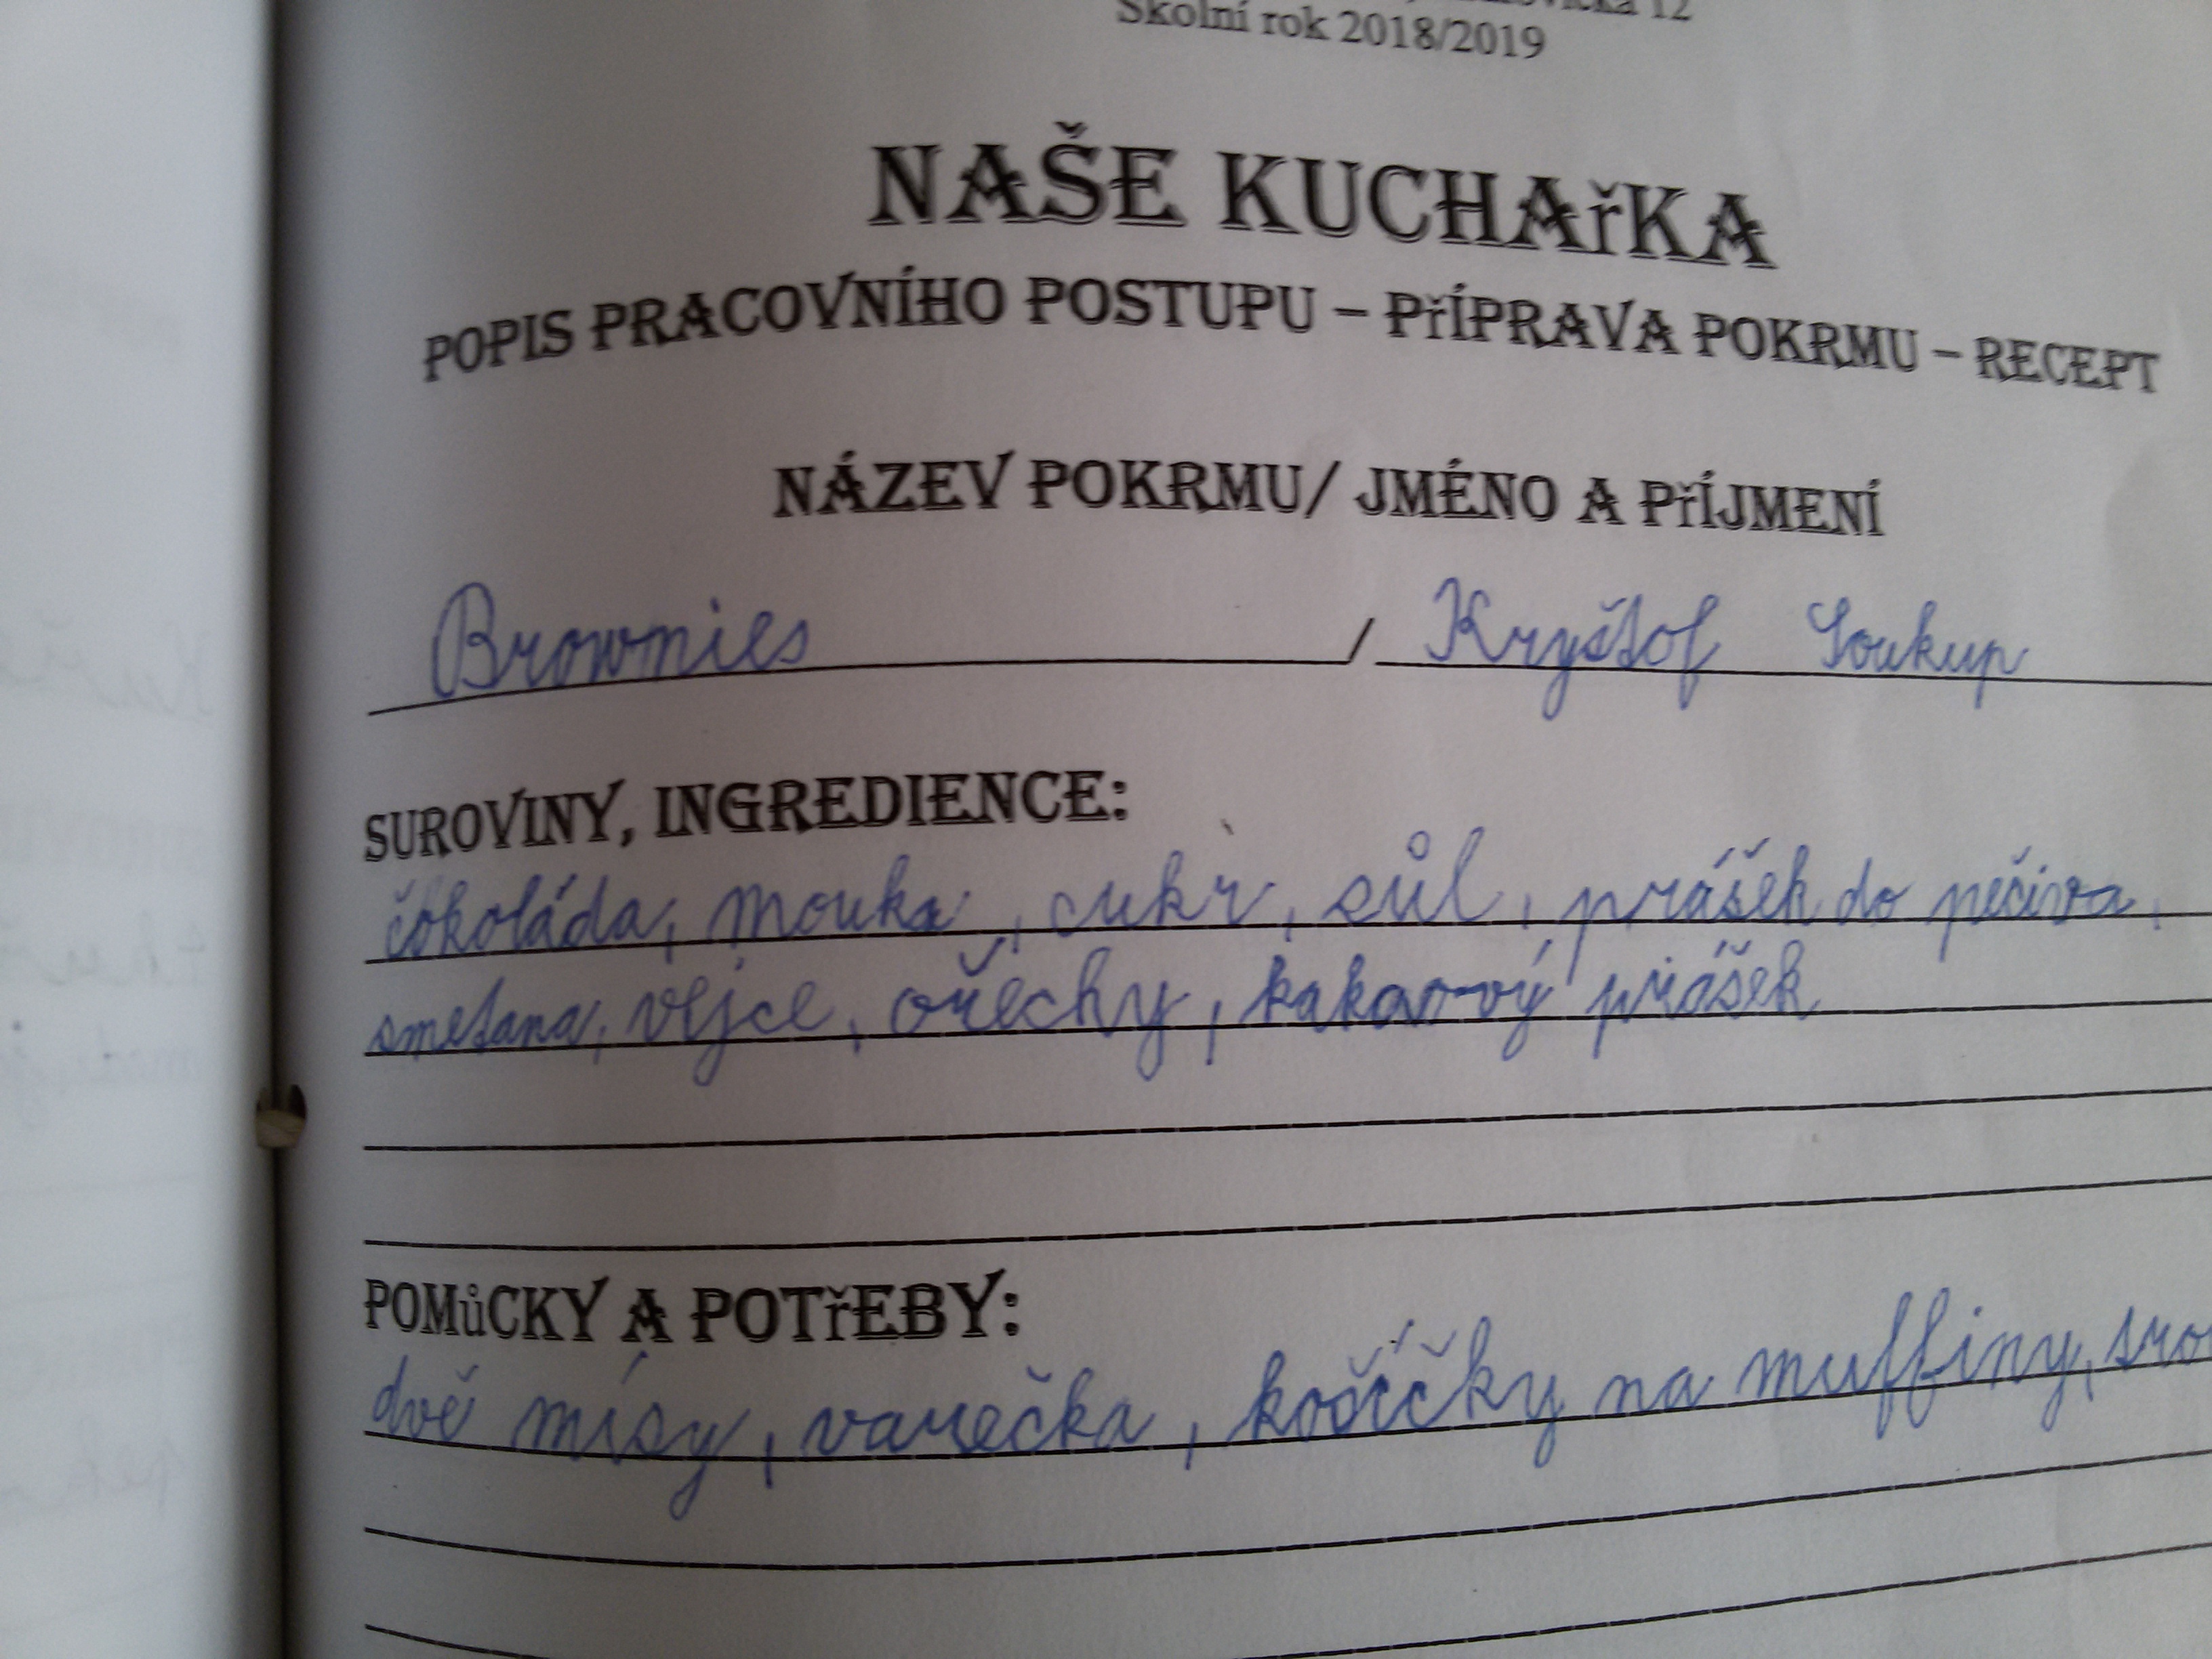 12
Školní rok 2018/2019
NAŠE KUCHAŘKA
POPIS PRACOVNÍHO POSTUPU – PŘÍPRAVA POKRMU – RECEPT
NÁZEV POKRMU/ JMÉNO A PŘÍJMENÍ
Brownies / Kryštof Soukup
SUROVINY, INGREDIENCE:
čokoláda, mouka, cukr, sůl, prášek do pečiva,
smetana, vejce, ořechy, kakaový prášek
POMŮCKY A POTŘEBY:
dvě mísy, vařečka, košíčky na muffiny,